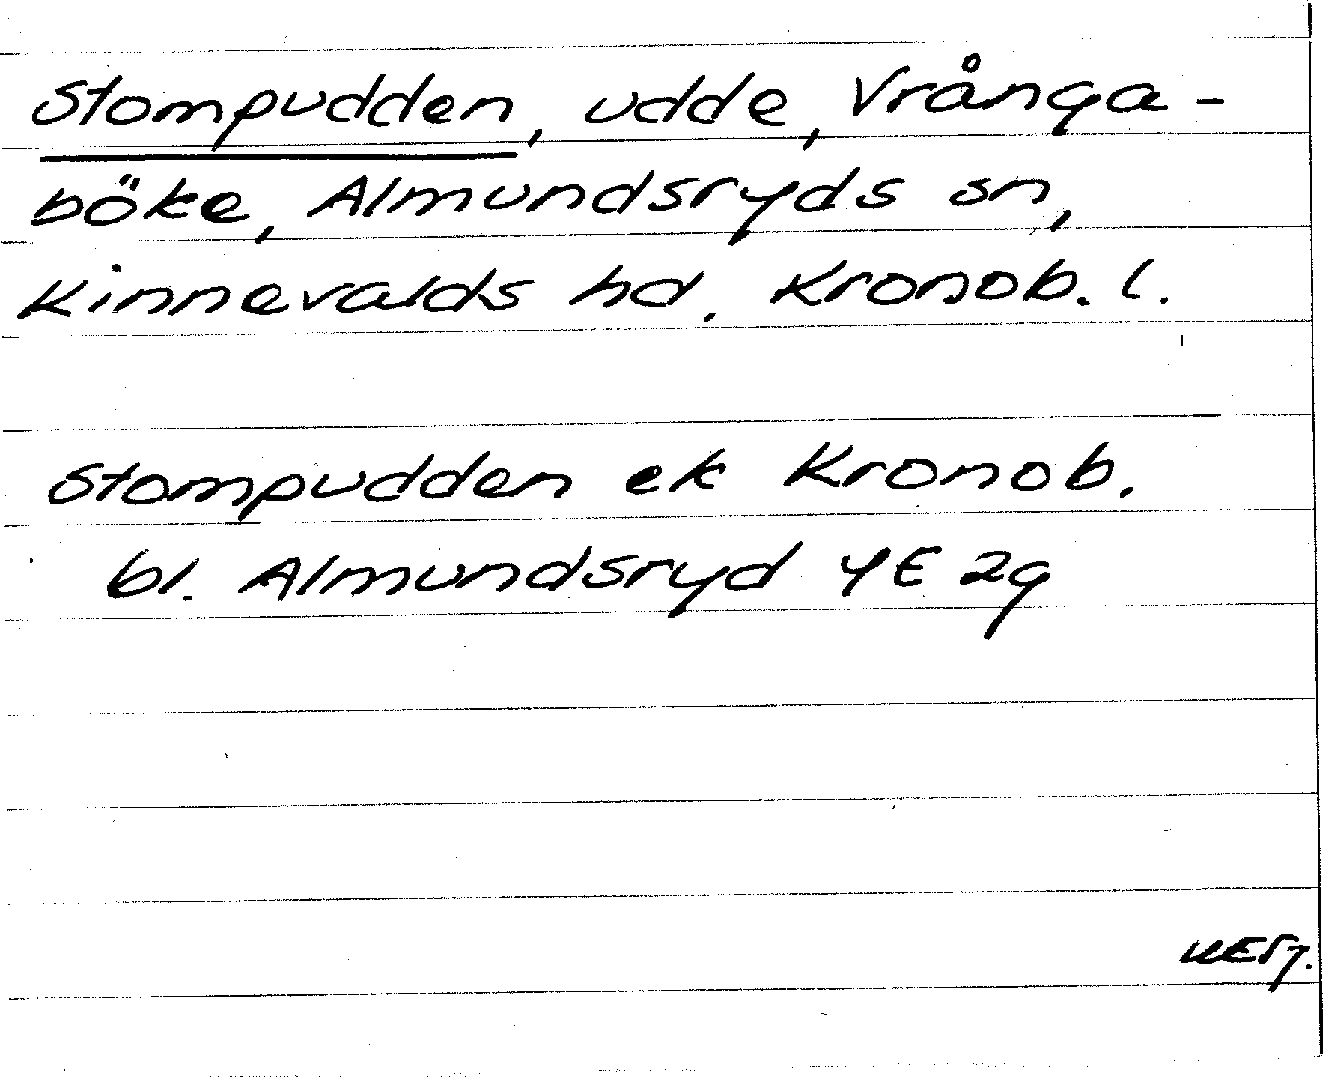 Stompudden, udde, Vrånga-
böke, Almundsryds sn,
Kinnevalds hd. Kronob. l.
Stompudden ek Kronob.
bl. Almundsryd 4E 2g